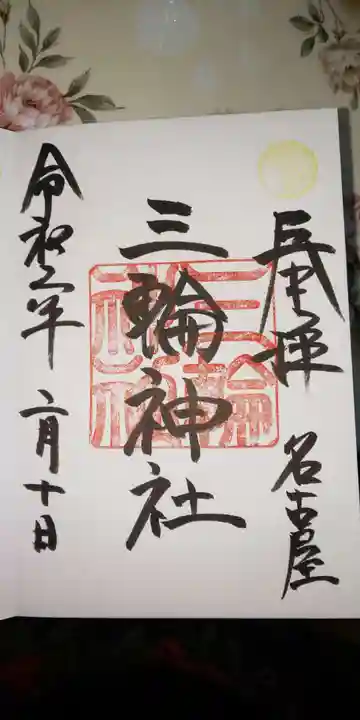 奉拝
名古屋
三輪神社
令和二年
二月十日